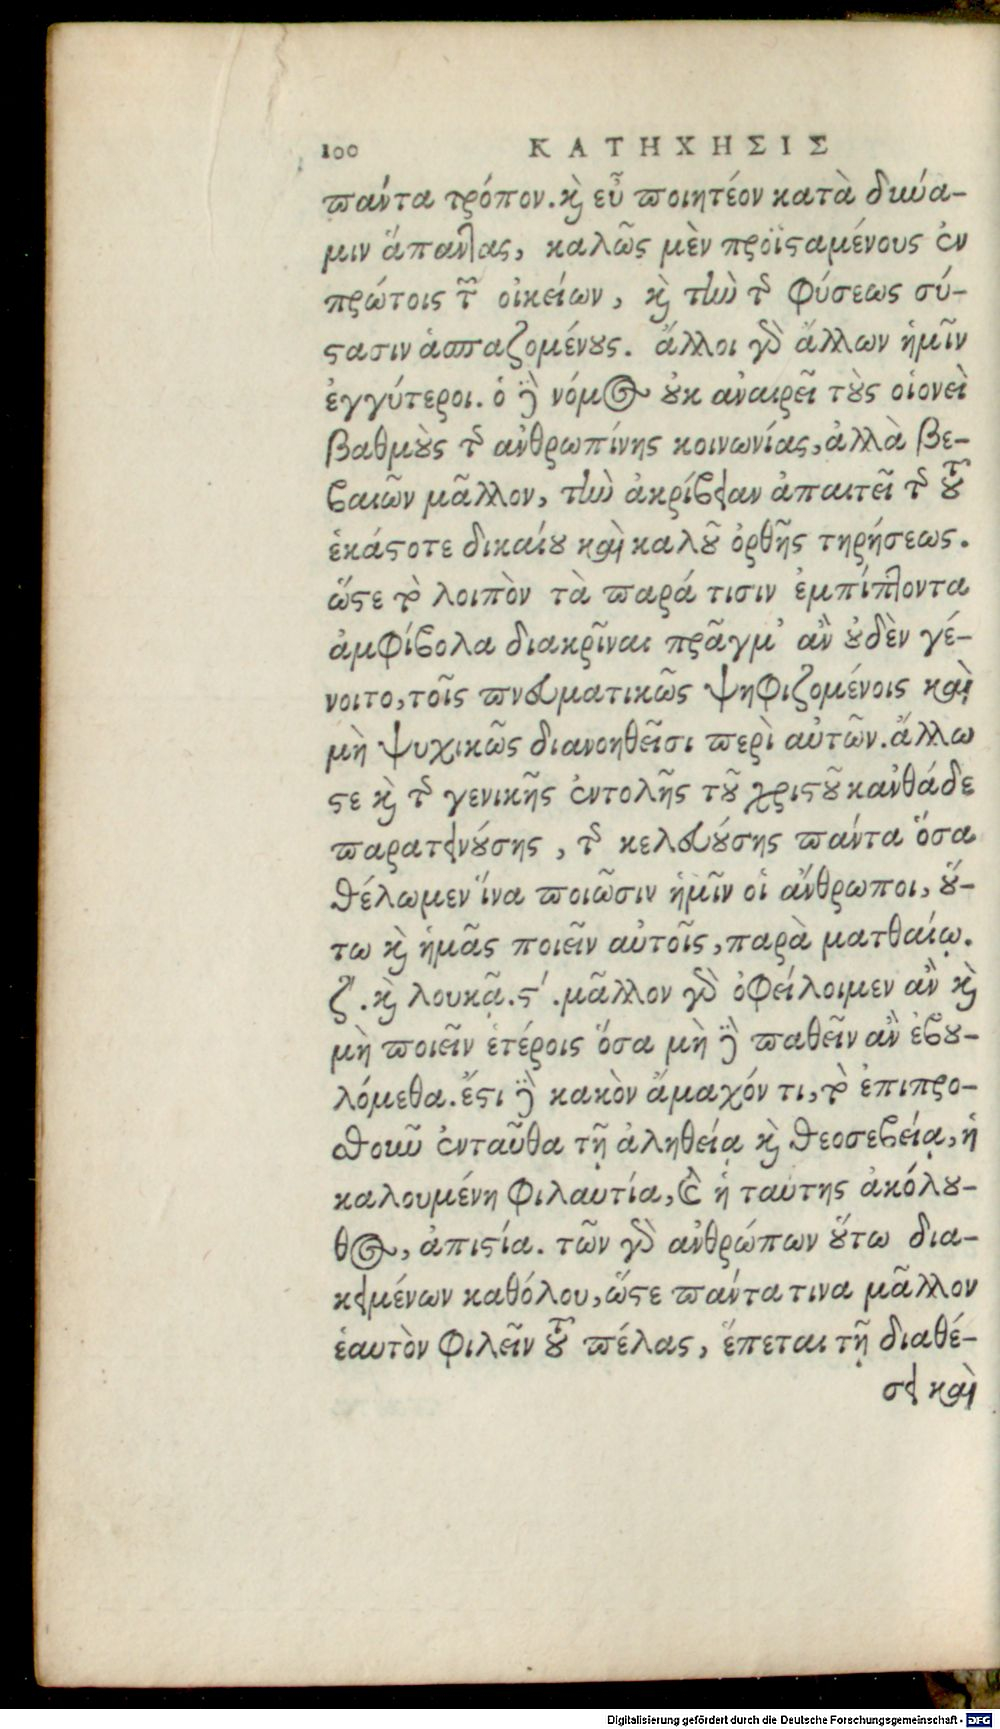 100 ΚΑΤΗΧΗΣΙΣ
πάντα τρόπον. καὶ εὖ ποιητέον κατὰ δύνα-
μιν ἅπαντας, καλῶς μὲν προϊσταμένους ἐν
πρώτοις τῶν οἰκείων, καὶ τὴν τῆς φύσεως σύ-
στασιν ἀσπαζομένους. ἄλλοι γὰρ ἄλλων ἡμῖν
ἐγγύτεροι. ὁ δὲ νόμος οὐκ ἀναιρεῖ τοὺς οἱονεὶ
βαθμοὺς τῆς ἀνθρωπίνης κοινωνίας, ἀλλὰ βε-
βαιῶν μᾶλλον, τὴν ἀκρίβειαν ἀπαιτεῖ τῆς τοῦ
ἑκάστοτε δικαίου καὶ καλοῦ ὀρθῆς τηρήσεως.
ὥστε τὸ λοιπὸν τὰ παρά τισιν ἐμπίπτοντα
ἀμφίβολα διακρῖναι πρᾶγμ' ἂν οὐδὲν γέ-
νοιτο, τοῖς πνευματικῶς ψηφιζομένοις καὶ
μὴ ψυχικῶς διανοηθεῖσι περὶ αὐτῶν. ἄλλω
στε καὶ τῆς γενικῆς ἐντολῆς τοῦ χριστοῦ κἀνθάδε
παρατεινούσης, τῆς κελευούσης πάντα ὅσα
θέλωμεν ἵνα ποιῶσιν ἡμῖν οἱ ἄνθρωποι, οὕ-
τω καὶ ἡμᾶς ποιεῖν αὐτοῖς, παρὰ ματθαίῳ.
ζ'. καὶ λουκᾷ. ϛ'. μᾶλλον γὰρ ὀφείλοιμεν ἂν καὶ
μὴ ποιεῖν ἑτέροις ὅσα μὴ δὲ παθεῖν ἂν ἐβου-
λόμεθα. ἔστι δὲ κακὸν ἄμαχόν τι, τὸ ἐπιπρο-
σθοῦν ἐνταῦθα τῇ ἀληθείᾳ καὶ θεοσεβείᾳ, ἡ
καλουμένη φιλαυτία, καὶ ἡ ταύτης ἀκόλου-
θος, ἀπιστία. τῶν γὰρ ἀνθρώπων οὕτω δια-
κειμένων καθόλου, ὥστε πάντα τινα μᾶλλον
ἑαυτὸν φιλεῖν τοῦ πέλας, ἕπεται τῇ διαθέ-
σει καὶ
Digitalisierung gefördert durch die Deutsche Forschungsgemeinschaft - DFG